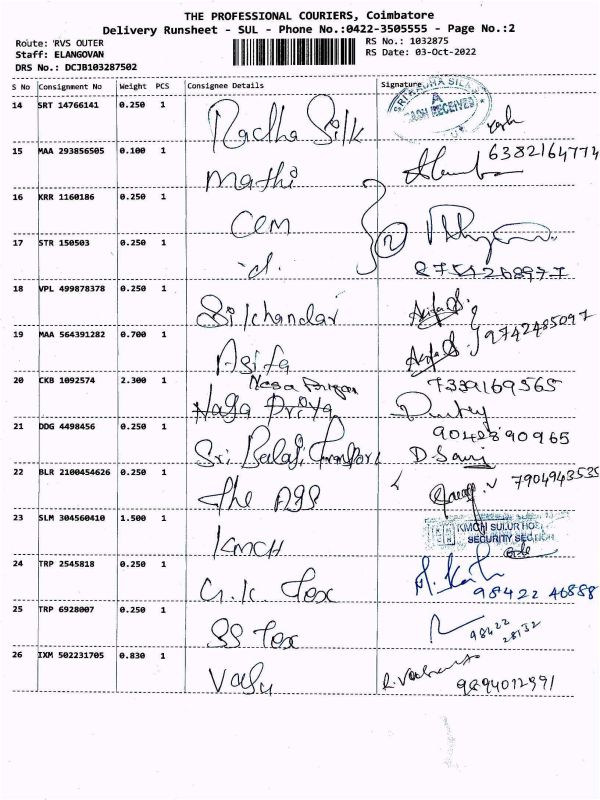 THE PROFESSIONAL COURIERS, Coimbatore
Delivery Runsheet - SUL - Phone No.:0422-3505555 - Page No.:2
Route: RVS OUTER RS No.: 1032875
Staff: ELANGOVAN RS Date: 03-Oct-2022
DRS No.: DCJB103287502
S No Consignment No Weight PCS Consignee Details Signature
14 SRT 14766141 0.250 1 Radha Silk
15 MAA 293856505 0.100 1 Mathi 6382164774
16 KRR 1160186 0.250 1 CEM
17 STR 150503 0.250 1 2
18 VPL 499878378 0.250 1 Silchandar
19 MAA 564391282 0.700 1 Asifa 9742485097
20 CKB 1092574 2.300 1 Naga Priya 7339169565
21 DDG 4498456 0.250 1 Sri Balaji Transport 9042890965
22 BLR 2100454626 0.250 1 The AGS 7904943535
23 SLM 304560410 1.500 1 KMCH KMCH SULUR HOS
SECURITY SECTION
24 TRP 2545818 0.250 1 G.K Tex 98422 46888
25 TRP 6928007 0.250 1 SS Tex 98422
28132
26 IXM 502231705 0.830 1 Vasu 9894012991